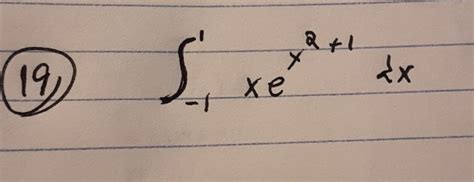 19, ∫_{-1}^{1} x e^{x^2+1} dx